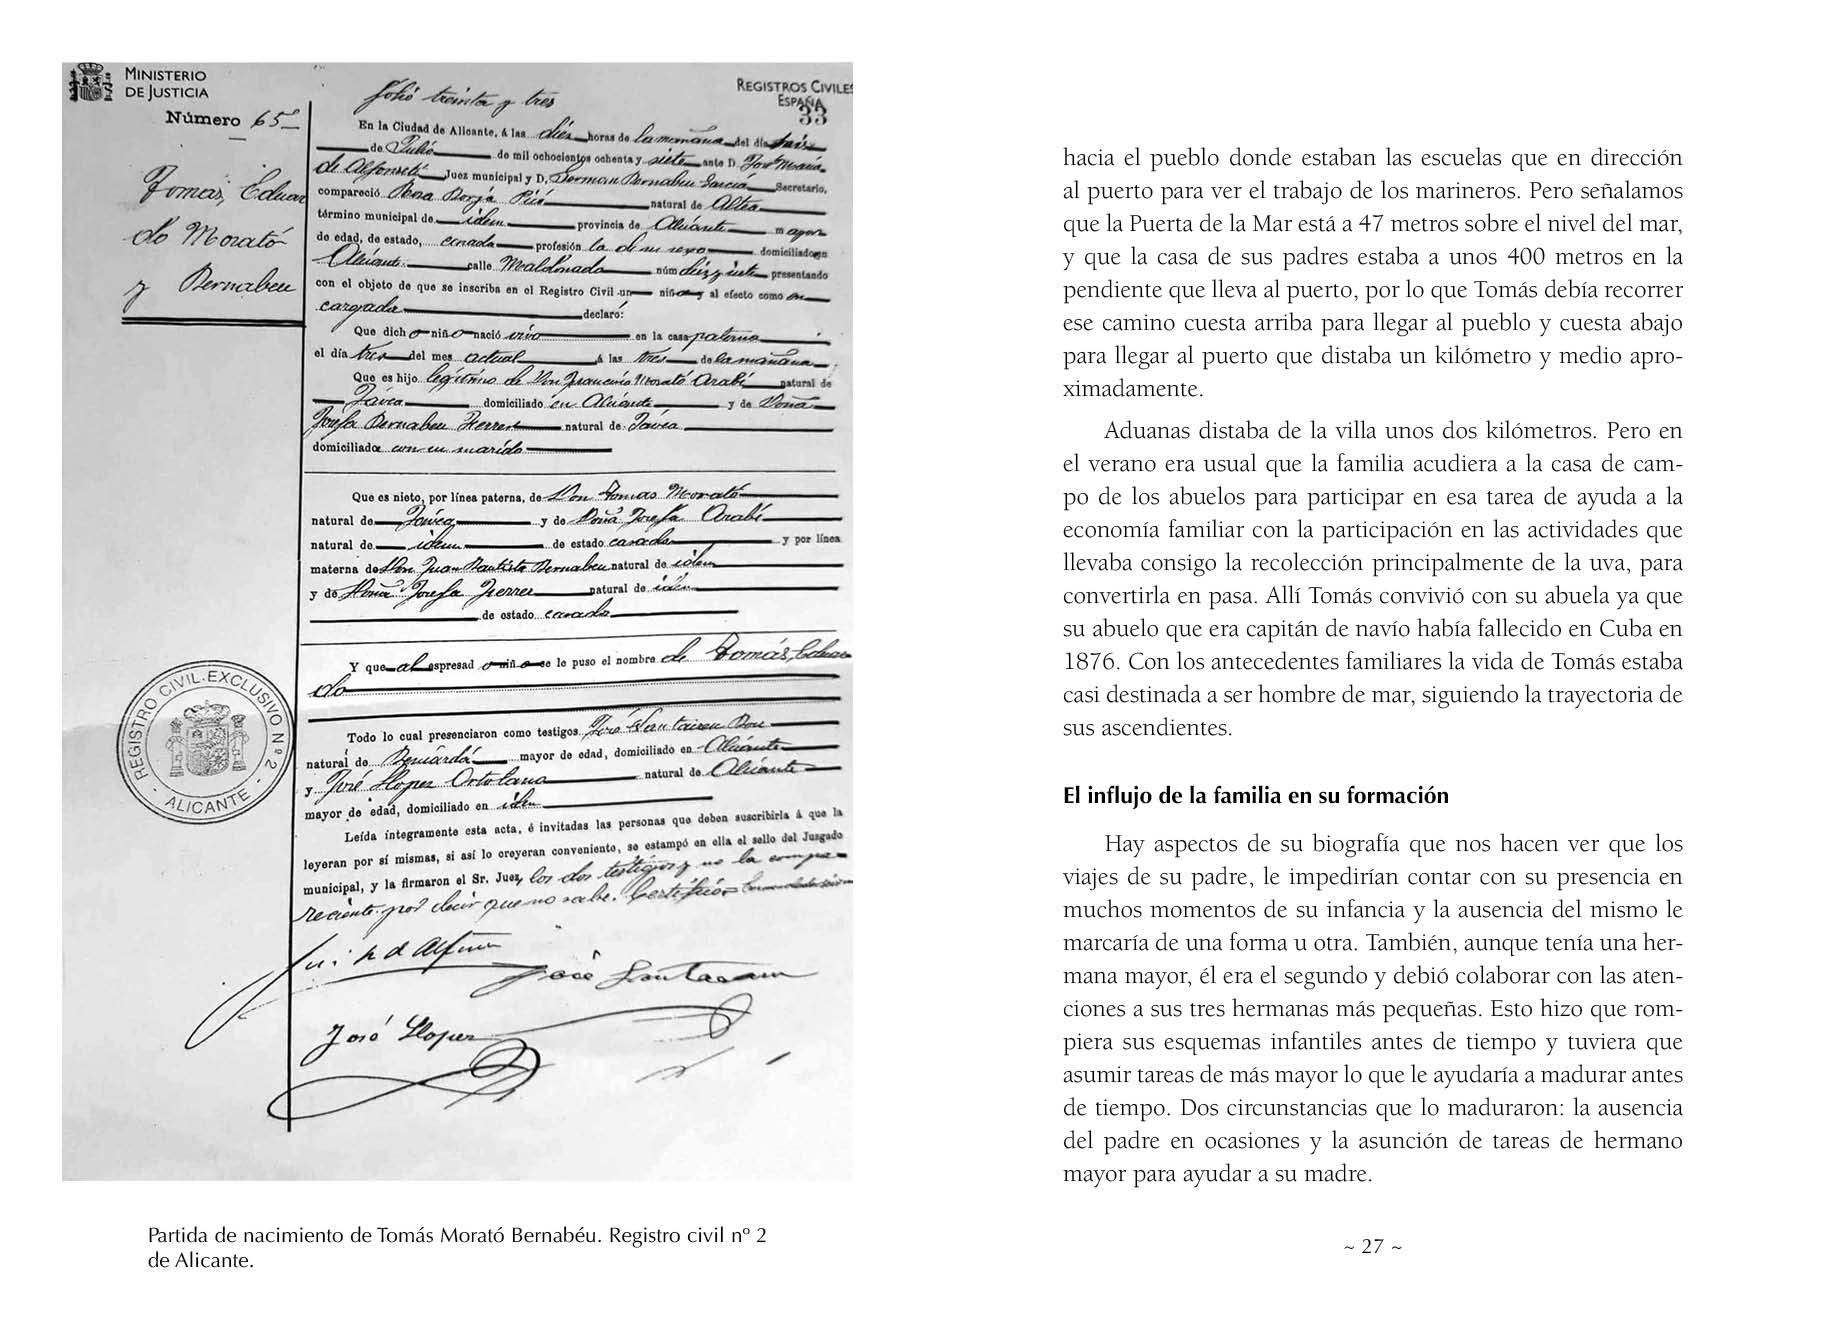 MINISTERIO
DE JUSTICIA
REGISTROS CIVILES
ESPAÑA
33
Folio treinta y tres
Número 65
Tomás, Eduar
do Morató
y Bernabeu
En la Ciudad de Alicante, á las diez horas de la mañana del dia
de Julio de mil ochocientos ochenta y siete ante D. José María
de Alfonseti Juez municipal y D. German Bernabeu Garcia Secretario,
compareció Rosa Borja natural de Altea
término municipal de idem provincia de Alicante mayor
de edad, de estado, casada profesión la de su sexo domiciliado en
Alicante calle Maldonado núm diez y siete presentando
con el objeto de que se inscriba en el Registro Civil un niño y al efecto como en
cargada declaró:
Que dicho niño nació vivo en la casa paterna
el día tres del mes actual á las tres de la mañana
Que es hijo legítimo de Don Francisco Morató Arabí natural de
Javea domiciliado en Alicante y de Doña
Josefa Bernabeu Ferrer natural de Javea
domiciliada con su marido
Que es nieto, por línea paterna, de Don Tomas Morató
natural de Javea y de Doña Josefa Arabí
natural de idem de estado casada y por línea
materna de Don Juan Bautista Bernabeu natural de idem
y de Doña Josefa Ferrer natural de idem
de estado casada
Y que al espresado niño se le puso el nombre de Tomás, Eduar
do
Todo lo cual presenciaron como testigos José
natural de Beniardá mayor de edad, domiciliado en Alicante
y José Llopez Ortolana natural de Alicante
mayor de edad, domiciliado en idem
Leída íntegramente esta acta, é invitadas las personas que deben suscribirla á que la
leyeran por sí mismas, si así lo creyeran conveniente, se estampó en ella el sello del Juzgado
municipal, y la firmaron el Sr. Juez, los dos testigos y no la compa
reciente por decir que no sabe. Certifico
José
José Llopez
REGISTRO CIVIL EXCLUSIVO Nº 2
- ALICANTE -
Partida de nacimiento de Tomás Morató Bernabéu. Registro civil nº 2
de Alicante.
hacia el pueblo donde estaban las escuelas que en dirección
al puerto para ver el trabajo de los marineros. Pero señalamos
que la Puerta de la Mar está a 47 metros sobre el nivel del mar,
y que la casa de sus padres estaba a unos 400 metros en la
pendiente que lleva al puerto, por lo que Tomás debía recorrer
ese camino cuesta arriba para llegar al pueblo y cuesta abajo
para llegar al puerto que distaba un kilómetro y medio apro-
ximadamente.
Aduanas distaba de la villa unos dos kilómetros. Pero en
el verano era usual que la familia acudiera a la casa de cam-
po de los abuelos para participar en esa tarea de ayuda a la
economía familiar con la participación en las actividades que
llevaba consigo la recolección principalmente de la uva, para
convertirla en pasa. Allí Tomás convivió con su abuela ya que
su abuelo que era capitán de navío había fallecido en Cuba en
1876. Con los antecedentes familiares la vida de Tomás estaba
casi destinada a ser hombre de mar, siguiendo la trayectoria de
sus ascendientes.
El influjo de la familia en su formación
Hay aspectos de su biografía que nos hacen ver que los
viajes de su padre, le impedirían contar con su presencia en
muchos momentos de su infancia y la ausencia del mismo le
marcaría de una forma u otra. También, aunque tenía una her-
mana mayor, él era el segundo y debió colaborar con las aten-
ciones a sus tres hermanas más pequeñas. Esto hizo que rom-
piera sus esquemas infantiles antes de tiempo y tuviera que
asumir tareas de más mayor lo que le ayudaría a madurar antes
de tiempo. Dos circunstancias que lo maduraron: la ausencia
del padre en ocasiones y la asunción de tareas de hermano
mayor para ayudar a su madre.
~ 27 ~